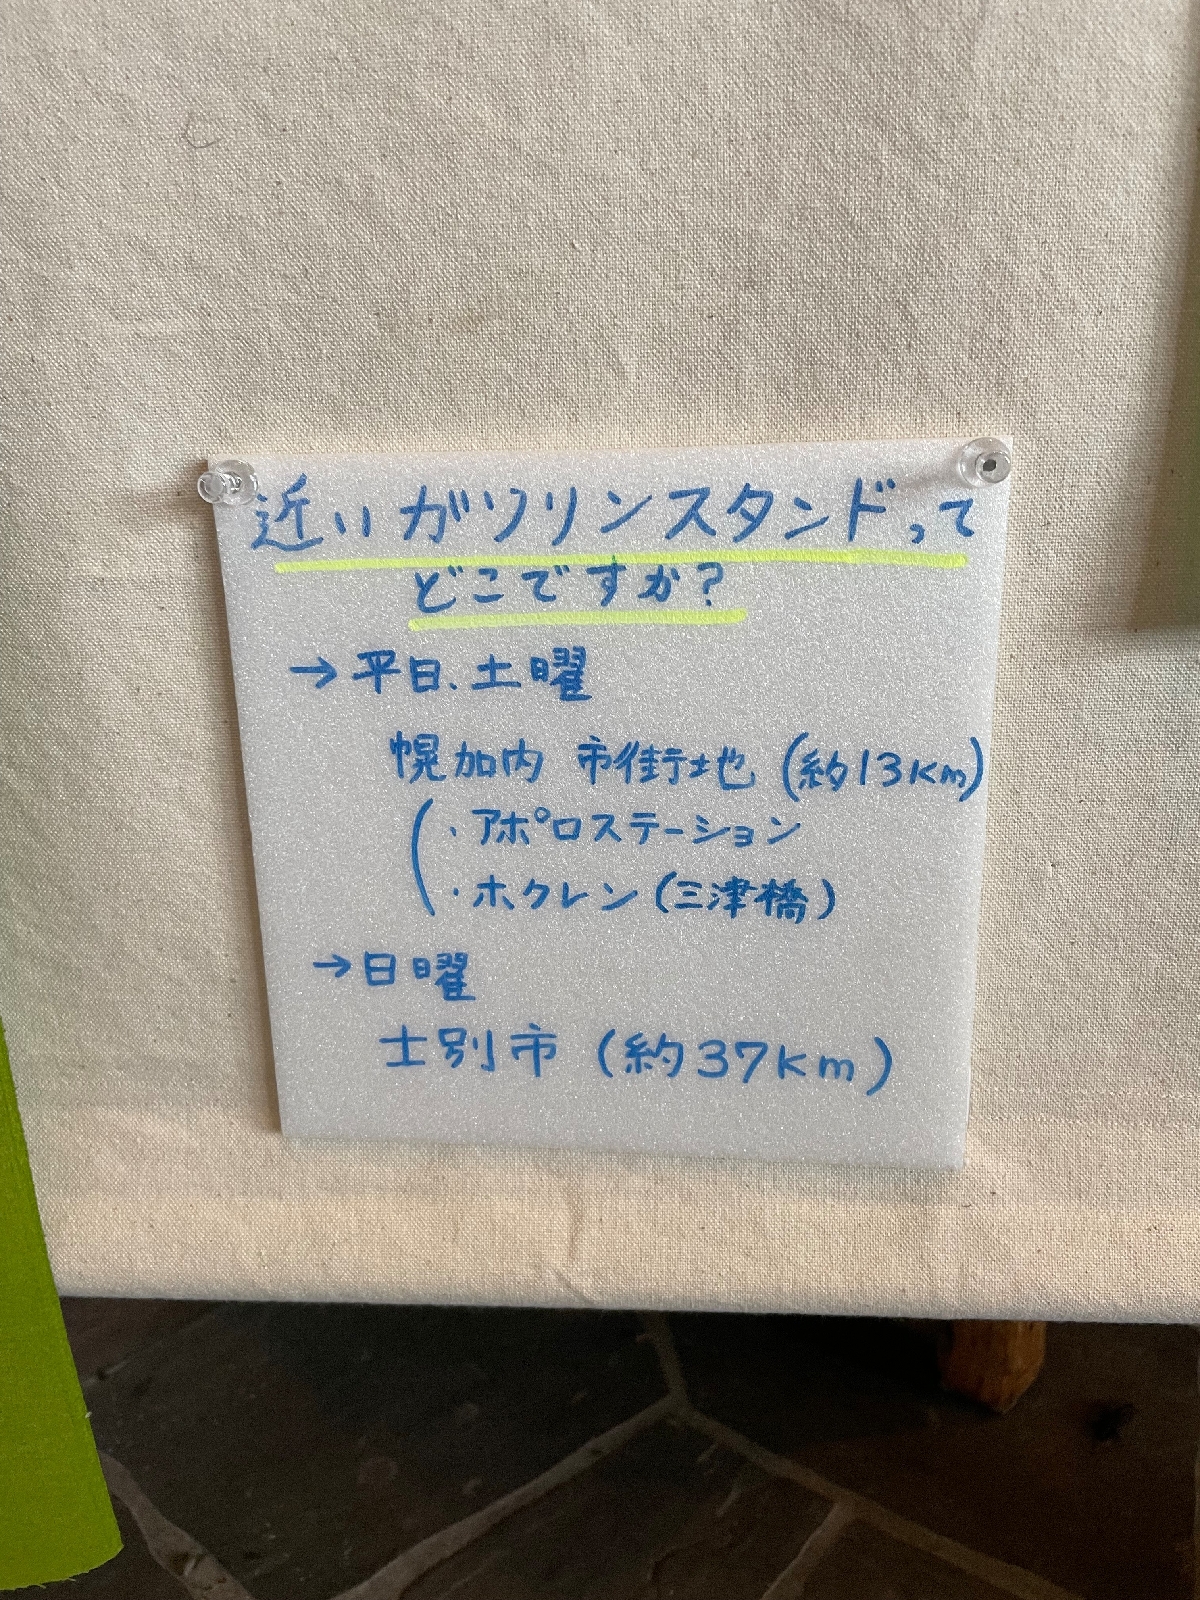 近いガソリンスタンドって
どこですか?
→平日、土曜
幌加内 市街地 (約13km)
・アポロステーション
・ホクレン(三津橋)
→日曜
士別市 (約37km)